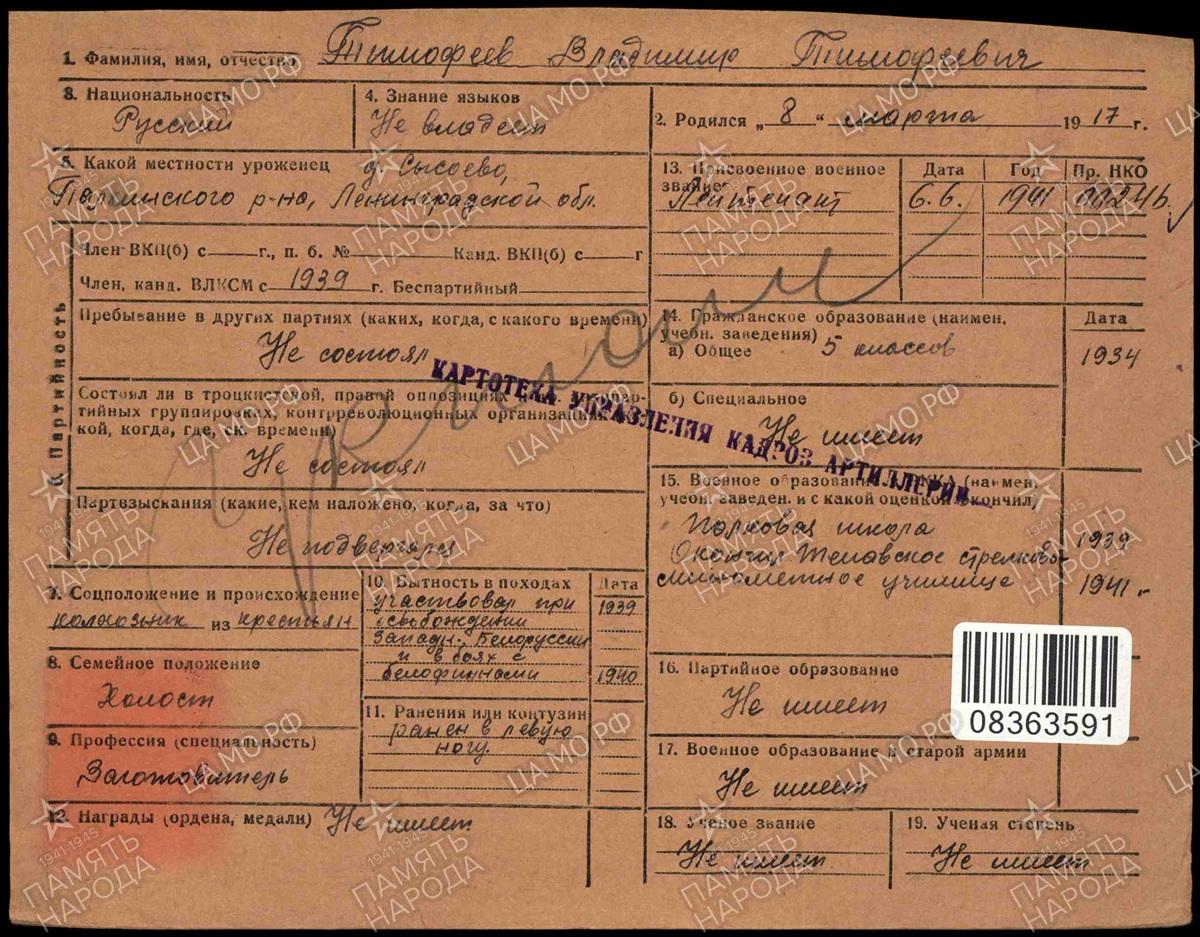 1. Фамилия, имя, отчество Тимофеев Владимир Тимофеевич
3. Национальность
Русский
4. Знание языков
Не владеет
2. Родился „ 8 “ марта 1917 г.
5. Какой местности уроженец д. Сысоево,
Палкинского р-на, Ленинградской обл.
13. Присвоенное военное звание
Дата Год Пр. НКО
Лейтенант 6.6. 1941
6. Партийность
Член ВКП(б) с г., п. б. № Канд. ВКП(б) с г
Член, канд. ВЛКСМ с 1939 г. Беспартийный
Пребывание в других партиях (каких, когда, с какого времени)
Не состоял
Состоял ли в троцкистской, правой оппозициях
тийных группировках, контрреволюционных организациях
кой, когда, где, ск. времени)
Не состоял
Партвзыскания (какие, кем наложено, когда, за что)
Не подвергался
14. Гражданское образование (наимен.
учебн. заведения)
Дата
а) Общее 5 классов 1934
б) Специальное
Не имеет
КАРТОТЕКА УПРАВЛЕНИЯ КАДРОВ АРТИЛЛЕРИИ
15. Военное образование (наимен.
учебн. заведен. и с какой оценкой окончил)
Полковая школа 1939
Окончил стрелково-
минометное училище 1941 г.
7. Соцположение и происхождение
колхозник из крестьян
8. Семейное положение
Холост
9. Профессия (специальность)
Заготовитель
10. Бытность в походах Дата
участвовал при 1939
освобождении
Западн. Белоруссии
и в боях с
белофиннами 1940
11. Ранения или контузии
ранен в левую
ногу.
12. Награды (ордена, медали) Не имеет
16. Партийное образование
Не имеет
08363591
17. Военное образование в старой армии
Не имеет
18. Ученое звание
Не имеет
19. Ученая степень
Не имеет
ЦАМО.РФ
ПАМЯТЬ
НАРОДА
1941-1945